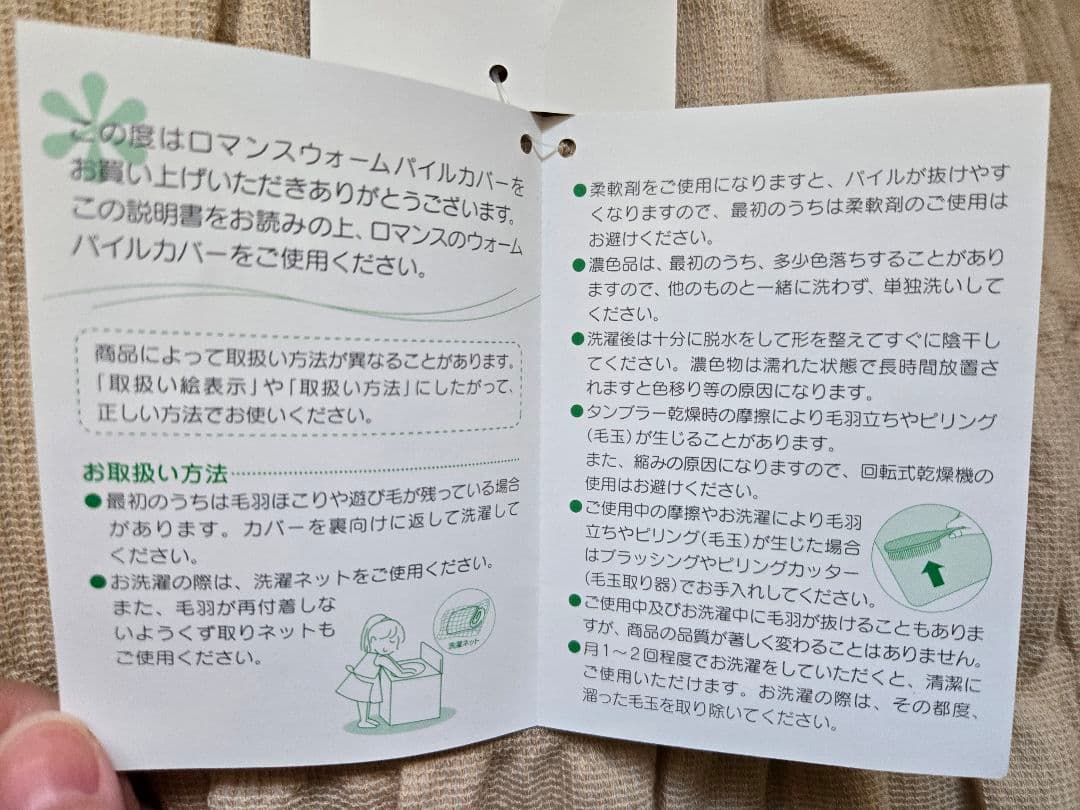 この度はロマンスウォームパイルカバーを
お買い上げいただきありがとうございます。
この説明書をお読みの上、ロマンスのウォーム
パイルカバーをご使用ください。
商品によって取扱い方法が異なることがあります。
「取扱い絵表示」や「取扱い方法」にしたがって、
正しい方法でお使いください。
お取扱い方法
●最初のうちは毛羽ほこりや遊び毛が残っている場合
があります。カバーを裏向けに返して洗濯して
ください。
●お洗濯の際は、洗濯ネットをご使用ください。
また、毛羽が再付着しな
いようくず取りネットも
ご使用ください。
洗濯ネット
●柔軟剤をご使用になりますと、パイルが抜けやす
くなりますので、最初のうちは柔軟剤のご使用は
お避けください。
●濃色品は、最初のうち、多少色落ちすることがあり
ますので、他のものと一緒に洗わず、単独洗いして
ください。
●洗濯後は十分に脱水をして形を整えてすぐに陰干し
てください。濃色物は濡れた状態で長時間放置さ
れますと色移り等の原因になります。
●タンブラー乾燥時の摩擦により毛羽立ちやピリング
(毛玉)が生じることがあります。
また、縮みの原因になりますので、回転式乾燥機の
使用はお避けください。
●ご使用中の摩擦やお洗濯により毛羽
立ちやピリング(毛玉)が生じた場合
はブラッシングやピリングカッター
(毛玉取り器)でお手入れしてください。
●ご使用中及びお洗濯中に毛羽が抜けることもありま
すが、商品の品質が著しく変わることはありません。
●月1～2回程度でお洗濯をしていただくと、清潔に
ご使用いただけます。お洗濯の際は、その都度、
溜った毛玉を取り除いてください。